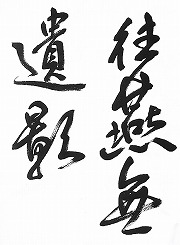 往燕無
遺影